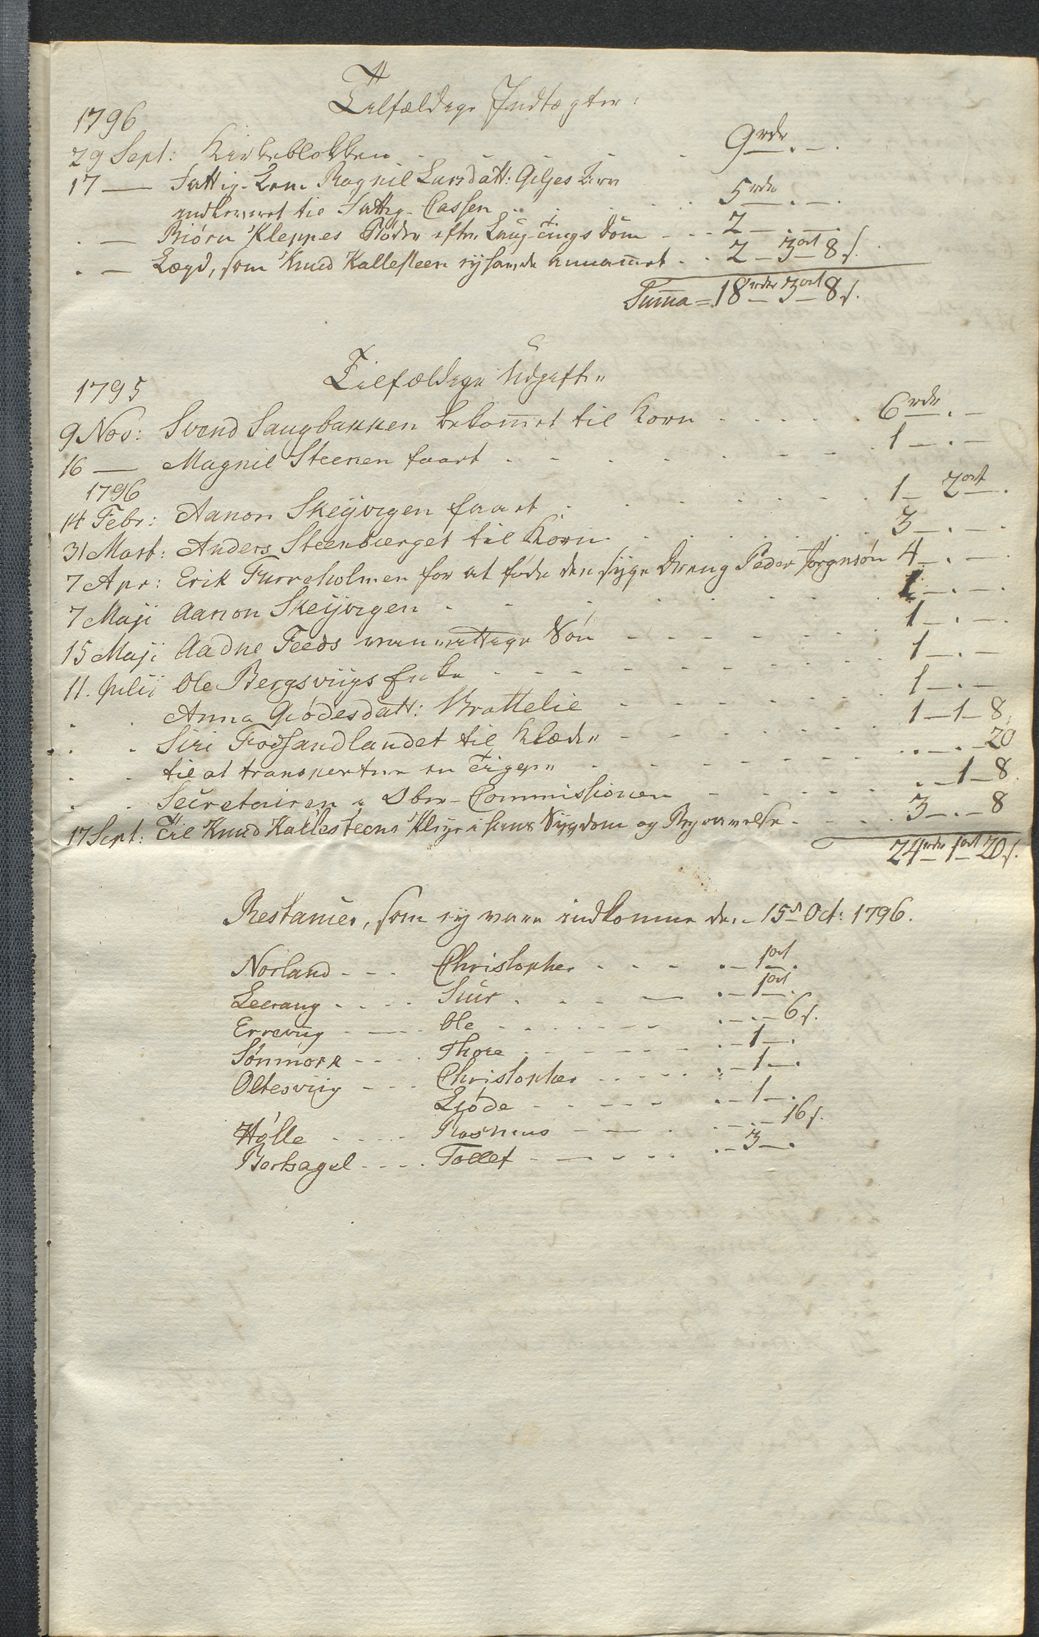 Tilfældige Indtægter:
1796
29 Sept: Kirkeblokken - - - 9 rdr. -
17 — Fattig-Lem Ragnil Larsdatt: Giljes
indkommet til Fattig-Cassen - - - 5 rdr - . -
. — Biørn Kleppes Bøder efter Laug-Tings Dom - - - 2 - . -
. — Lægd, som Knud Kallesteen annammet - . 2 - 3 ort 8 s.
Summa = 18 rdr 3 ort 8 s.
Tilfældige Udgifter
1795
9 Nov: Svend Saugbakken bekommet til Korn - - - - 6 rdr. -
16 — Magnil Steenen faaet - - - - 1 - . -
1796
14 Febr: Aanon Skeijvigen faaet - - - - 1 - 2 ort.
31 Mart: Anders Steenbierget til Korn - - - - 3 - . -
7 Apr: Erik Furreholmen for at føde den syge Dreng Peder Jørgensøn 4 - . -
7 Maji Aanon Skeijvigen - - - - 1 - . -
15 Maji Aadne Feeds Søn - - - - 1 - . -
11. Julii Ole Bergsviigs Enke - - - - 1 - . -
. . Anna Giødesdatt: Brattelie - - - - 1 - . -
. . Siri Fossandlandet til Klæder - - - - 1 - 1 - 8.
. . til at transportere en - - - - . - . 20
. . Secretairen i Ober-Commissionen - - - - . - 1 - 8.
17 Sept: Til Knud Kallesteens Pleije i hans Sygdom og Begravelse - - 3 - . - 8
24 rdr 1 ort 20 s.
Restancer, som ej vare indkomne den 15d Oct: 1796.
Norland - - - Christopher - - - - . - 1 ort.
Leerang - - - - Siur - - - . - 1 ort.
Errevüg - - - Ole - - - - . - . - 6 s.
Sønmork - - - - Thore - - - - . - 1 - .
Oltesviig - - - Christopher - - - - . - 1 - .
Giøde - - - - . - 1 - .
Hølle - - - - Rasmus - - - . - . - 16 s.
Barkagel - - - - Tollef - - - - . - 3 - .